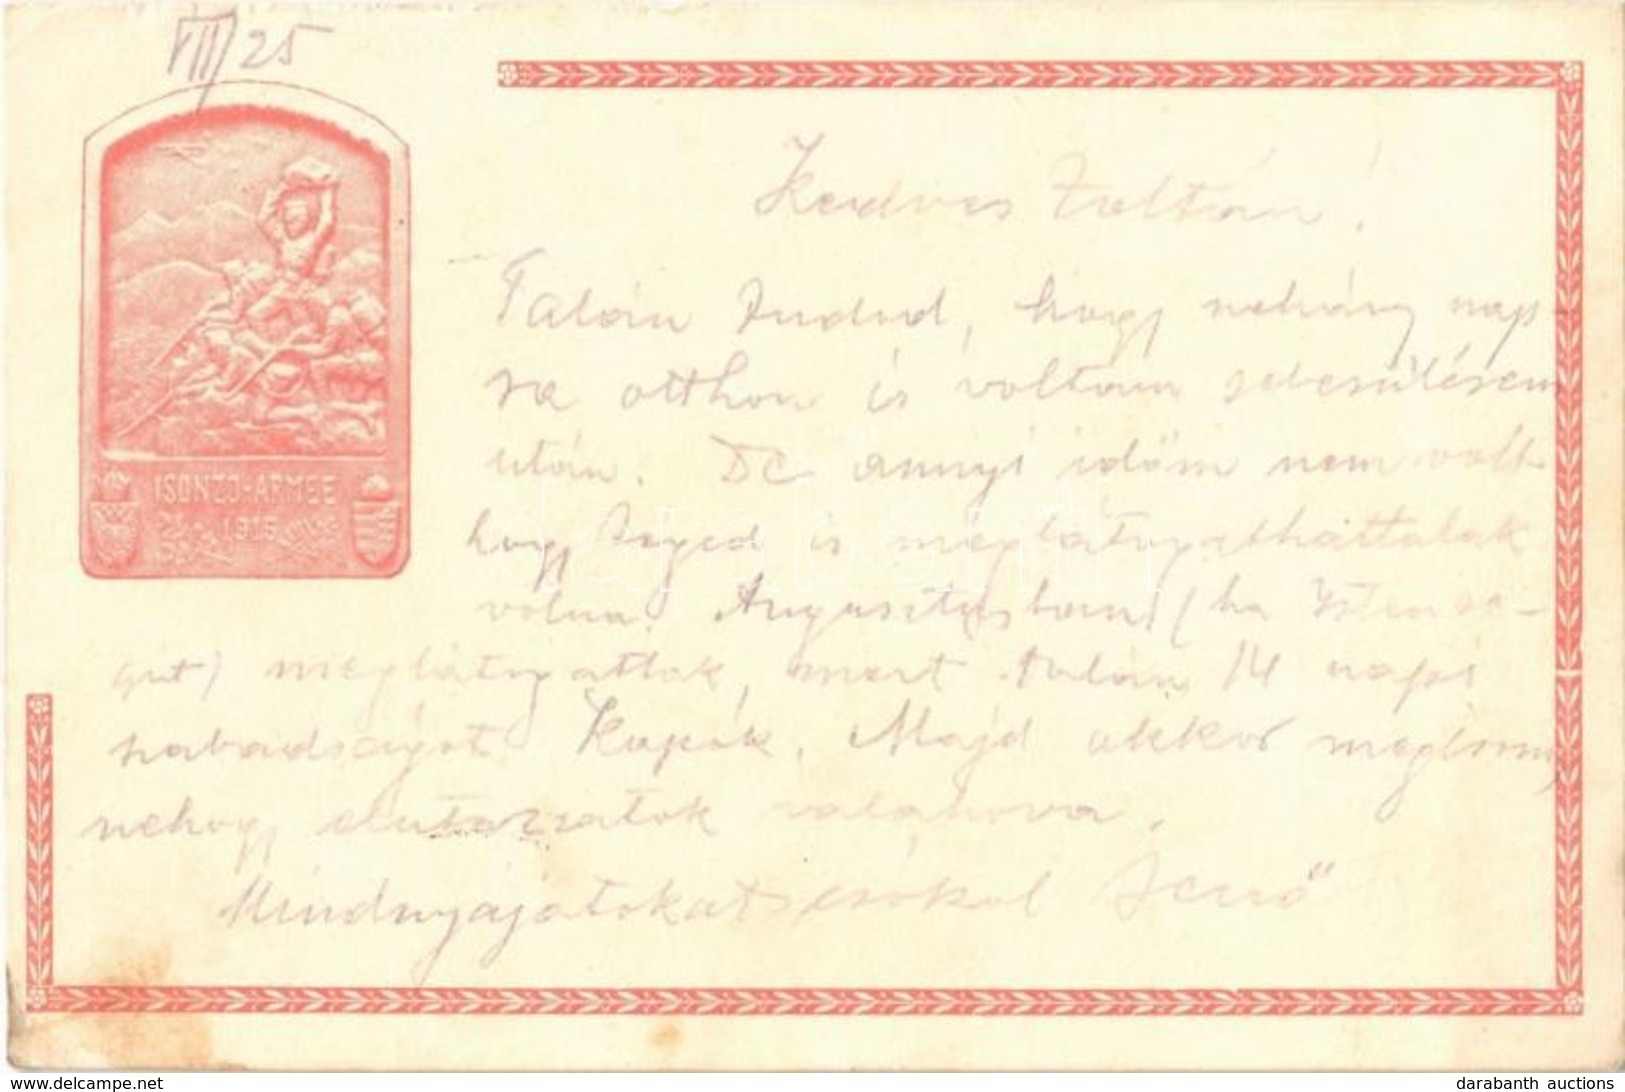 VII/25
Kedves Zoltán!
Talán Tudod, hogy nehány nap-
ra otthon is voltam sebesülésem
után. De annyi időm nem volt
hogy Titeket is meglátogathattalak
volna. Augusztusban (ha Isten se-
git) meglátogatlak, mert talán 14 napi
szabadságot kapok. Majd akkor megirom,
nehogy elutazzatok valahova.
Mindnyájatokat csókol Jenő
ISONZO-ARMEE
1915
darabanth
www.delcampe.net
darabanth auctions